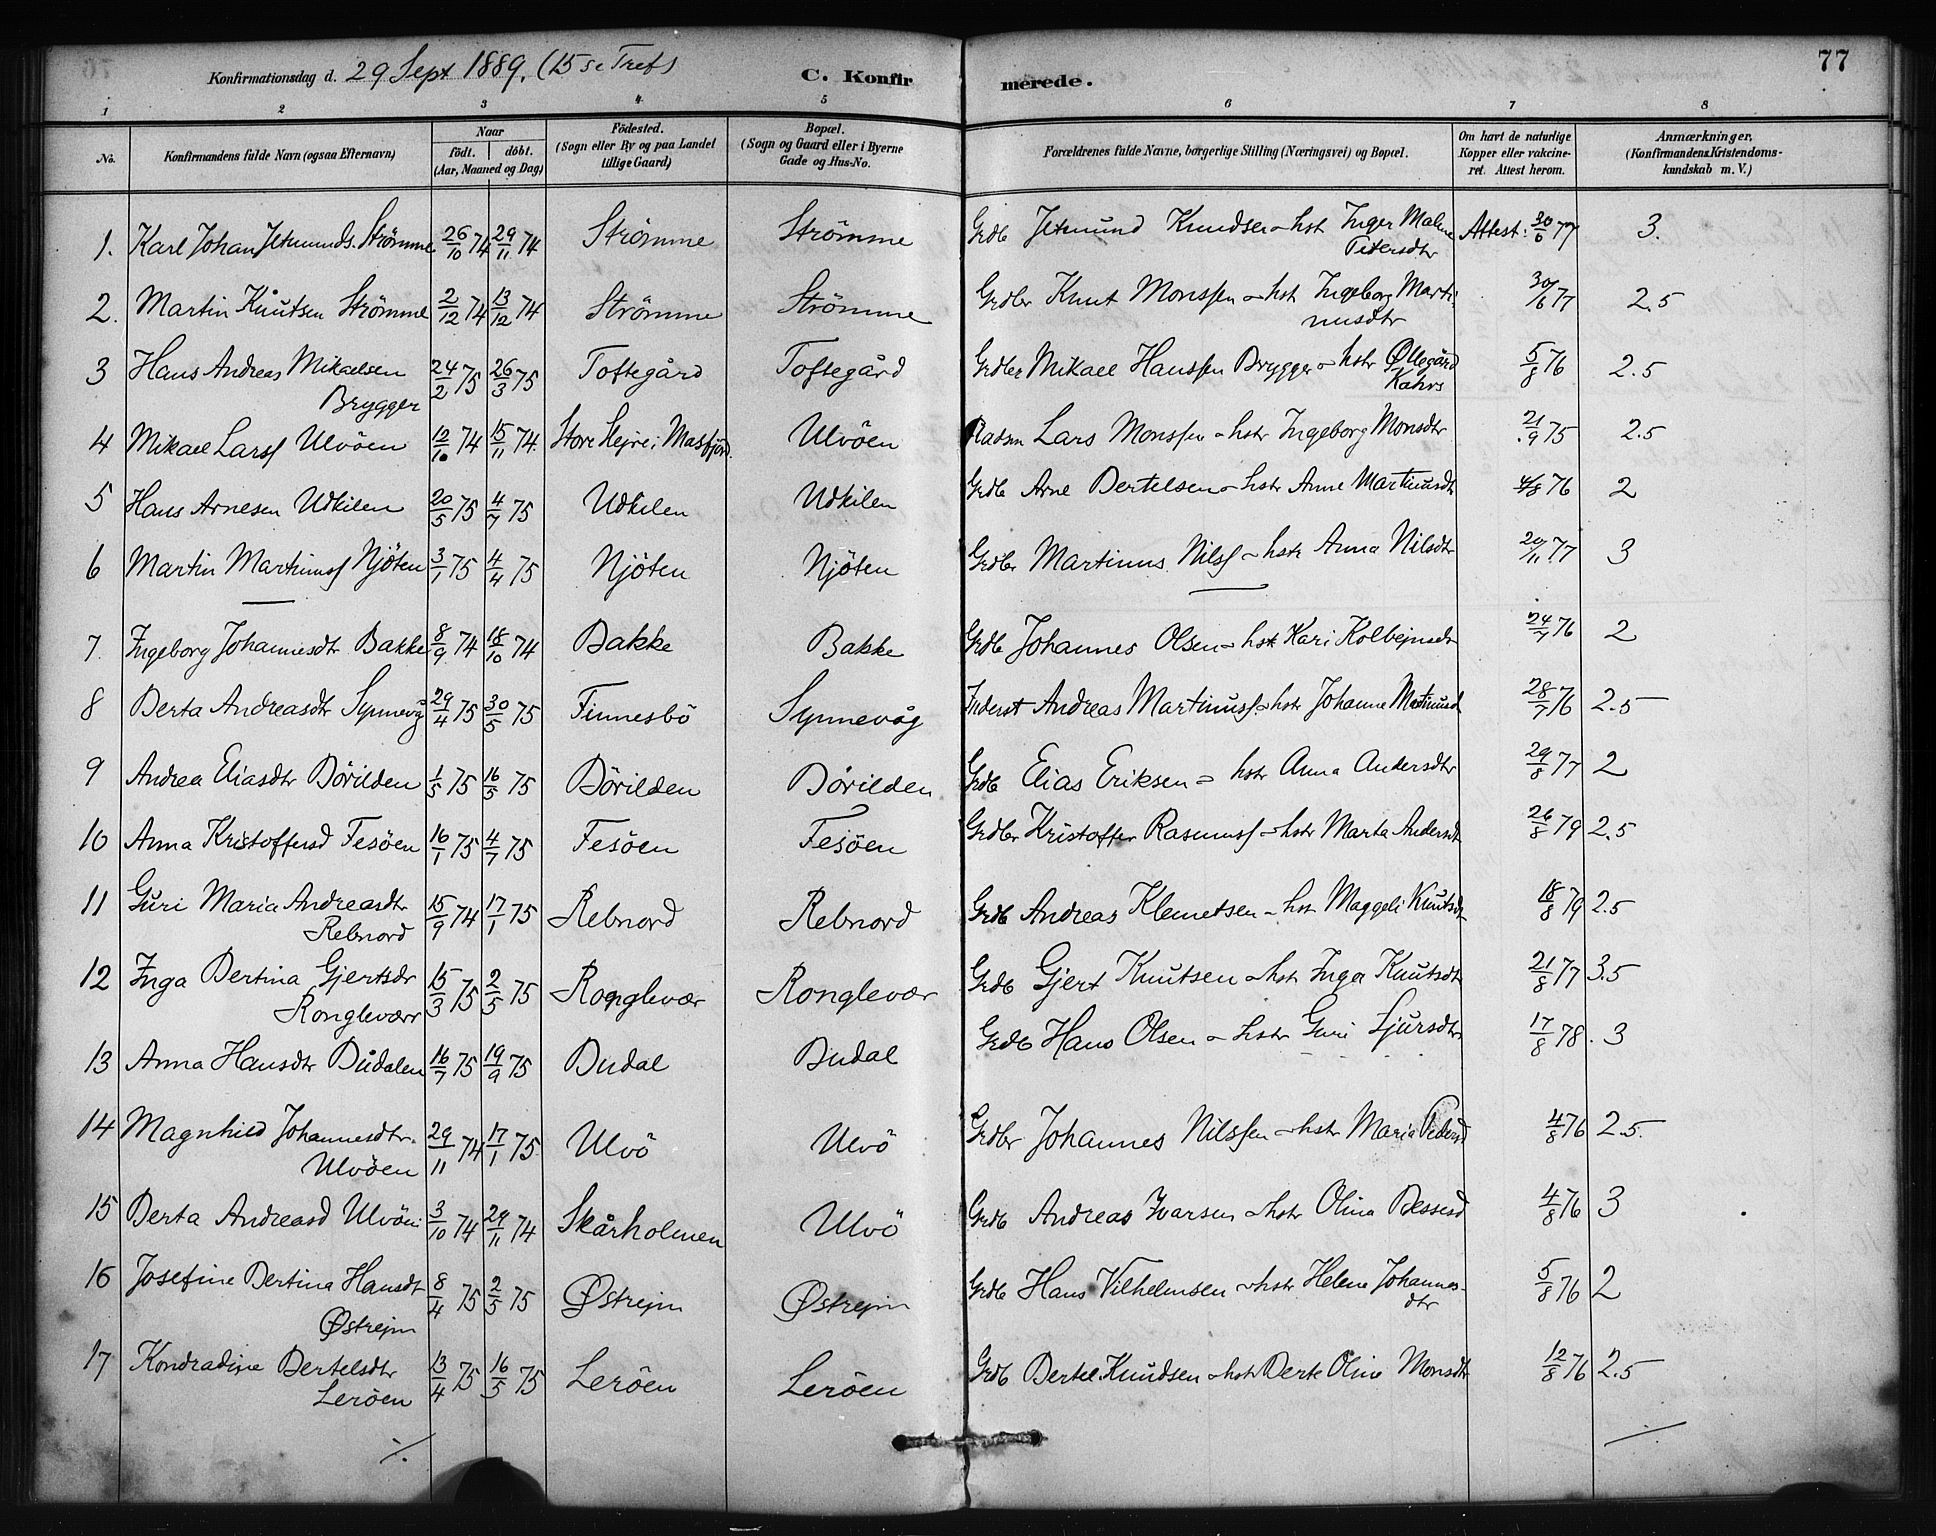 77
Konfirmationsdag d. 29 Sept 1889. (15 se Tref)
C. Konfirmerede.
1 2 3 4 5 6 7 8
No. Konfirmandens fulde Navn (ogsaa Efternavn) Naar födt. döbt. (Aar, Maaned og Dag) Födested. (Sogn eller By og paa Landet tillige Gaard) Bopæl. (Sogn og Gaard eller i Byerne Gade og Hus-No. Forældrenes fulde Navne, borgerlige Stilling (Næringsvei) og Bopæl. Om havt de naturlige Kopper eller vakcineret. Attest herom. Anmærkninger, (Konfirmandens Kristendomskundskab m. V.)
1. Karl Johan Jetmunds. Strömme 26/10 74 29/11 74 Strömme Strömme Grdb Jetmund Knudsen - hst Inger Malene Petersdtr Attest: 30/6 77 3.
2. Martin Knutsen Strömme 2/12 74 13/12 74 Strömme Strömme Grdbr Knut Monssen - hst Ingeborg Martinusdtr 30/6 77 2.5
3 Hans Andreas Mikaelsen Brygger 24/2 75 26/3 75 Toftegård Toftegård Grdbr Mikael Hanssen Brygger - hstr Øllegård Kahrs 5/8 76 2.5
4 Mikael Larss Ulvöen 12/10 74 15/11 74. Store Hejre i Masfjord. Ulvöen Lars Monssen - hstr Ingeborg Monsdtr 21/9 75 2.5
5 Hans Arnesen Udkilen 20/5 75 4/7 75 Udkilen Udkilen Grdb Arne Bertelsen - hstr Anne Martinusdt 4/8 76 2
6 Martin Martinuss Njöten 3/1 75 4/4 75 Njöten Njöten Grdbr Martinus Nilss - hstr Anna Nilsdtr 20/11 77 3
7. Ingeborg Johannesdtr Bakke 8/9 74 18/10 74 Bakke Bakke Grdb Johannes Olsen - hstr Kari Kolbejnsdr 24/7 76 2
8 Berta Andreasdtr Synnevåg 29/4 75 30/5 75 Finnesbö Synnevåg Inderst Andreas Martinuss. - hstr Johanne Martinusd 28/7 76 2.5
9 Andrea Eliasdtr Börilden 1/5 75 16/5 75 Börilden Börilden Grdb Elias Eriksen - hstr Anna Andersdtr 29/8 77 2
10 Anna Kristoffersd Fesöen 16/1 75 4/7 75 Fesöen Fesöen Grdbr Kristoffer Rasmuss - hstr Marta Andersdt 26/8 79 2.5
11 Guri Maria Andreasdtr Rebnord 15/9 74 17/1 75 Rebnord Rebnord Grdb Andreas Klemetsen - hst Maggeli Knutsdt 18/8 79 2.5
12 Inga Bertina Gjertsdr Ronglevær 15/3 75 2/5 75 Ronglevær Ronglevær Grdb Gjert Knutsen - hst Inga Knutsdt 21/8 77 3.5
13 Anna Hansdtr Budalen 16/7 75 19/9 75 Budal Budal Grdb Hans Olsen - hstr Guri Sjursdtr 17/8 78. 3
14 Magnhild Johannesdtr. Ulvöen 29/11 74 17/1 75 Ulvö Ulvö Grdbr Johannes Nilssen - hstr Maria Pedersd 4/8 76 2.5.
15 Berta Andreasd Ulvöen 3/10 74 29/11 74 Skårholmen Ulvö Grdb Andreas Ivarsen - hstr Olina Bessesd 4/8 76 3
16 Josefine Bertina Hansdt Østrejm 8/4 75 2/5 75 Østrejm Østrejm Grdb Hans Vilhelmsen - hstr Helene Johannesdtr 5/8 76 2
17 Kondradine Bertelsdtr Leröen 13/4 75 16/5 75 Leröen Leröen Grdb Bertel Knudsen - hst Berte Oline Monsdt 12/8 76 2.5